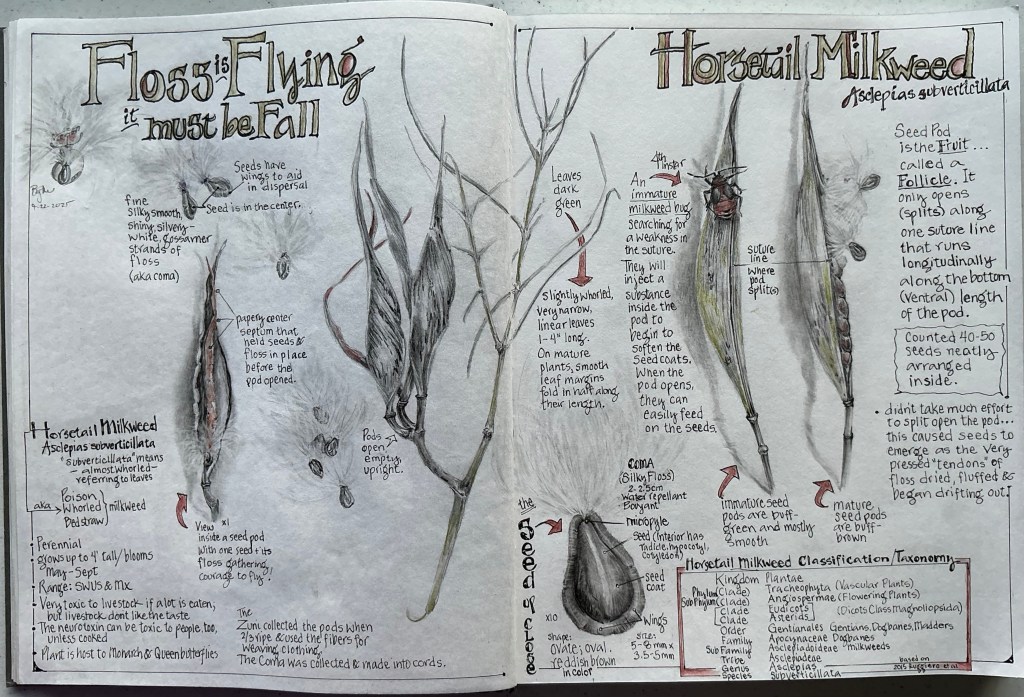 Floss is Flying
it must be Fall
9-22-2025
Seeds have
wings to aid
in dispersal
Seed is in the center.
fine
silky smooth,
shiny, silvery-
white, gossamer
strands of
floss
(aka coma)
papery center
septum that
held seeds &
floss in place
before the
pod opened.
Pods
open
empty,
upright.
Horsetail Milkweed
Asclepias subverticillata
"subverticillata" means
- almost whorled -
referring to leaves
aka
Poison
Whorled
Bedstraw
milkweed
View x1
inside a seed pod
with one seed & its
floss gathering
courage to fly!
• Perennial
• grows up to 4' tall/blooms
May-Sept
• Range: SWUS & MX
• Very toxic to livestock if a lot is eaten;
but livestock dont like the taste
• The neurotoxin can be toxic to people, too,
unless cooked
• Plant is host to Monarch & Queen butterflies
The
Zuni collected the pods when
2/3 ripe & used the fibers for
weaving, clothing,
The Coma was collected & made into cords.
Horsetail Milkweed
Asclepias subverticillata
Leaves
dark
green
slightly whorled,
very narrow,
linear leaves
1-4" long.
On mature
plants, smooth
leaf margins
fold in half along
their length.
4th instar
An
immature
milkweed bug
searching for
a weakness in
the suture.
They will
inject a
substance
inside the
pod to
begin to
soften the
seed coats.
When the
pod opens,
they can
easily feed
on the seeds.
suture
line
where
pod
split(s)
Seed Pod
is the Fruit...
called a
Follicle. It
only opens
(splits) along
one suture line
that runs
longitudinally
along the bottom
(ventral) length
of the pod.
Counted 40-50
seeds neatly
arranged
inside.
• didnt take much effort
to split open the pod...
this caused seeds to
emerge as the very
pressed "tendons" of
floss dried, fluffed &
began drifting out!
immature seed
pods are buff-
green and mostly
smooth
mature
seed pods
are buff-
brown
the Seed up close
COMA
(Silky Floss)
2-2.5cm
water repellant
Buoyant
micropyle
seed (interior has
radicle, hypocotyl,
cotyledon)
seed
coat
wings
x10
shape:
ovate; oval.
reddish brown
in color
size:
5-8mm x
3.5-5mm
Horsetail Milkweed Classification/Taxonomy
Kingdom Plantae
Phylum (Clade) Tracheophyta (Vascular Plants)
Sub Phylum (Clade) Angiospermae (Flowering Plants)
Clade Eudicots (Dicots Class Magnoliopsida)
Clade Asterids
Order Gentianales Gentians, Dogbanes, Madders
Family Apocynaceae Dogbanes
Sub Family Asclepiadoideae milkweeds
Tribe Asclepiadeae
Genus Asclepias
Species Subverticillata
based on
2015 Ruggiero et al